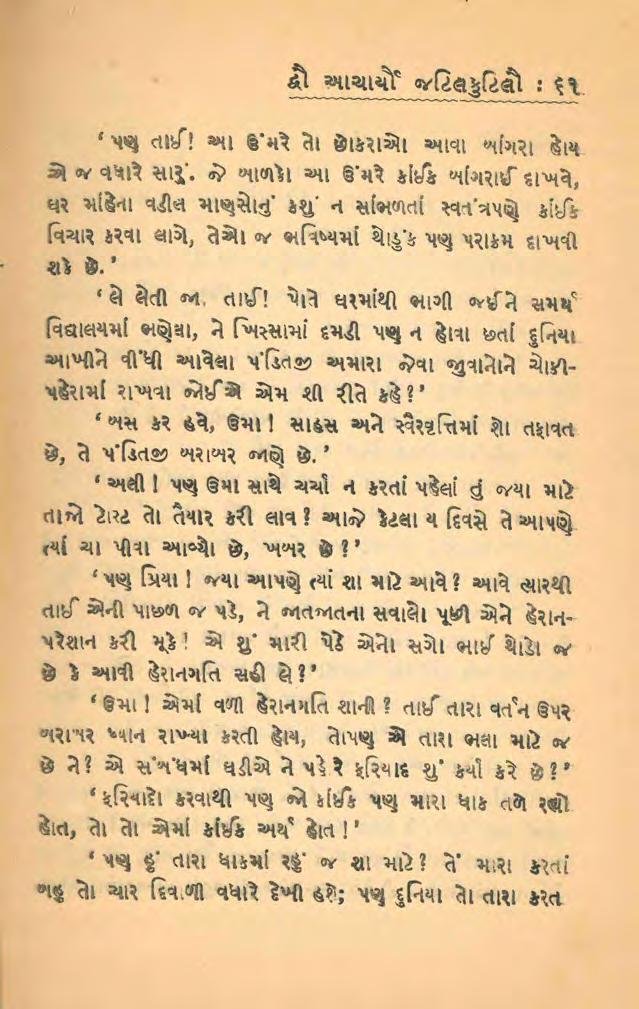 દ્વૌ આચાર્યૌ જટિલકુટિલૌ : ૬૧
‘પણ તાઈ! આ ઉંમરે તો છોકરાઓ આવા ખાંગરા હોય
એ જ વધારે સારું. જે બાળકો આ ઉંમરે કાંઈક ખાંગરાઈ દાખવે,
ઘર માંહેના વડીલ માણસોનું કશું ન સાંભળતાં સ્વતંત્રપણે કાંઈક
વિચાર કરવા લાગે, તેઓ જ ભવિષ્યમાં થોડુંક પણ પરાક્રમ દાખવી
શકે છે.’
‘લે લેતી જા, તાઈ! પોતે ઘરમાંથી ભાગી જઈને સમર્થ
વિદ્યાલયમાં ભણેલા, ને ખિસ્સામાં દમડી પણ ન હોવા છતાં દુનિયા
આખીને વીંધી આવેલા પંડિતજી અમારા જેવા જુવાનોને ચોકી-
પહેરામાં રાખવા જોઈએ એમ શી રીતે કહે?’
‘બસ કર હવે, ઉમા! સાહસ અને સ્વૈરવૃત્તિમાં શો તફાવત
છે, તે પંડિતજી બરાબર જાણે છે.’
‘અલી! પણ ઉમા સાથે ચર્ચા ન કરતાં પહેલાં તું જયા માટે
તાજો ટોસ્ટ તો તૈયાર કરી લાવ? આજે કેટલા ય દિવસે તે આપણે
ત્યાં ચા પીવા આવ્યો છે, ખબર છે?’
‘પણ પ્રિયા! જયા આપણે ત્યાં શા માટે આવે? આવે ત્યારથી
તાઈ એની પાછળ જ પડે, ને જાતજાતના સવાલો પૂછી એને હેરાન-
પરેશાન કરી મૂકે! એ શું મારી પેઠે એનો સગો ભાઈ થોડો જ
છે કે આવી હેરાનગતિ સહી લે?’
‘ઉમા! એમાં વળી હેરાનગતિ શાની? તાઈ તારા વર્તન ઉપર
બરાબર ધ્યાન રાખ્યા કરતી હોય, તોપણ એ તારા ભલા માટે જ
છે ને? એ સંબંધમાં ઘડીએ ને પડે રે ફરિયાદ શું કર્યા કરે છે?’
‘ફરિયાદો કરવાથી પણ જો કાંઈક પણ મારા ધાક તળે રહ્યો
હોત, તો તો એમાં કાંઈક અર્થ હોત!’
‘પણ હું તારા ધાકમાં રહું જ શા માટે? તેં મારા કરતાં
બહુ તો ચાર દિવાળી વધારે દેખી હશે; પણ દુનિયા તો તારા કરત